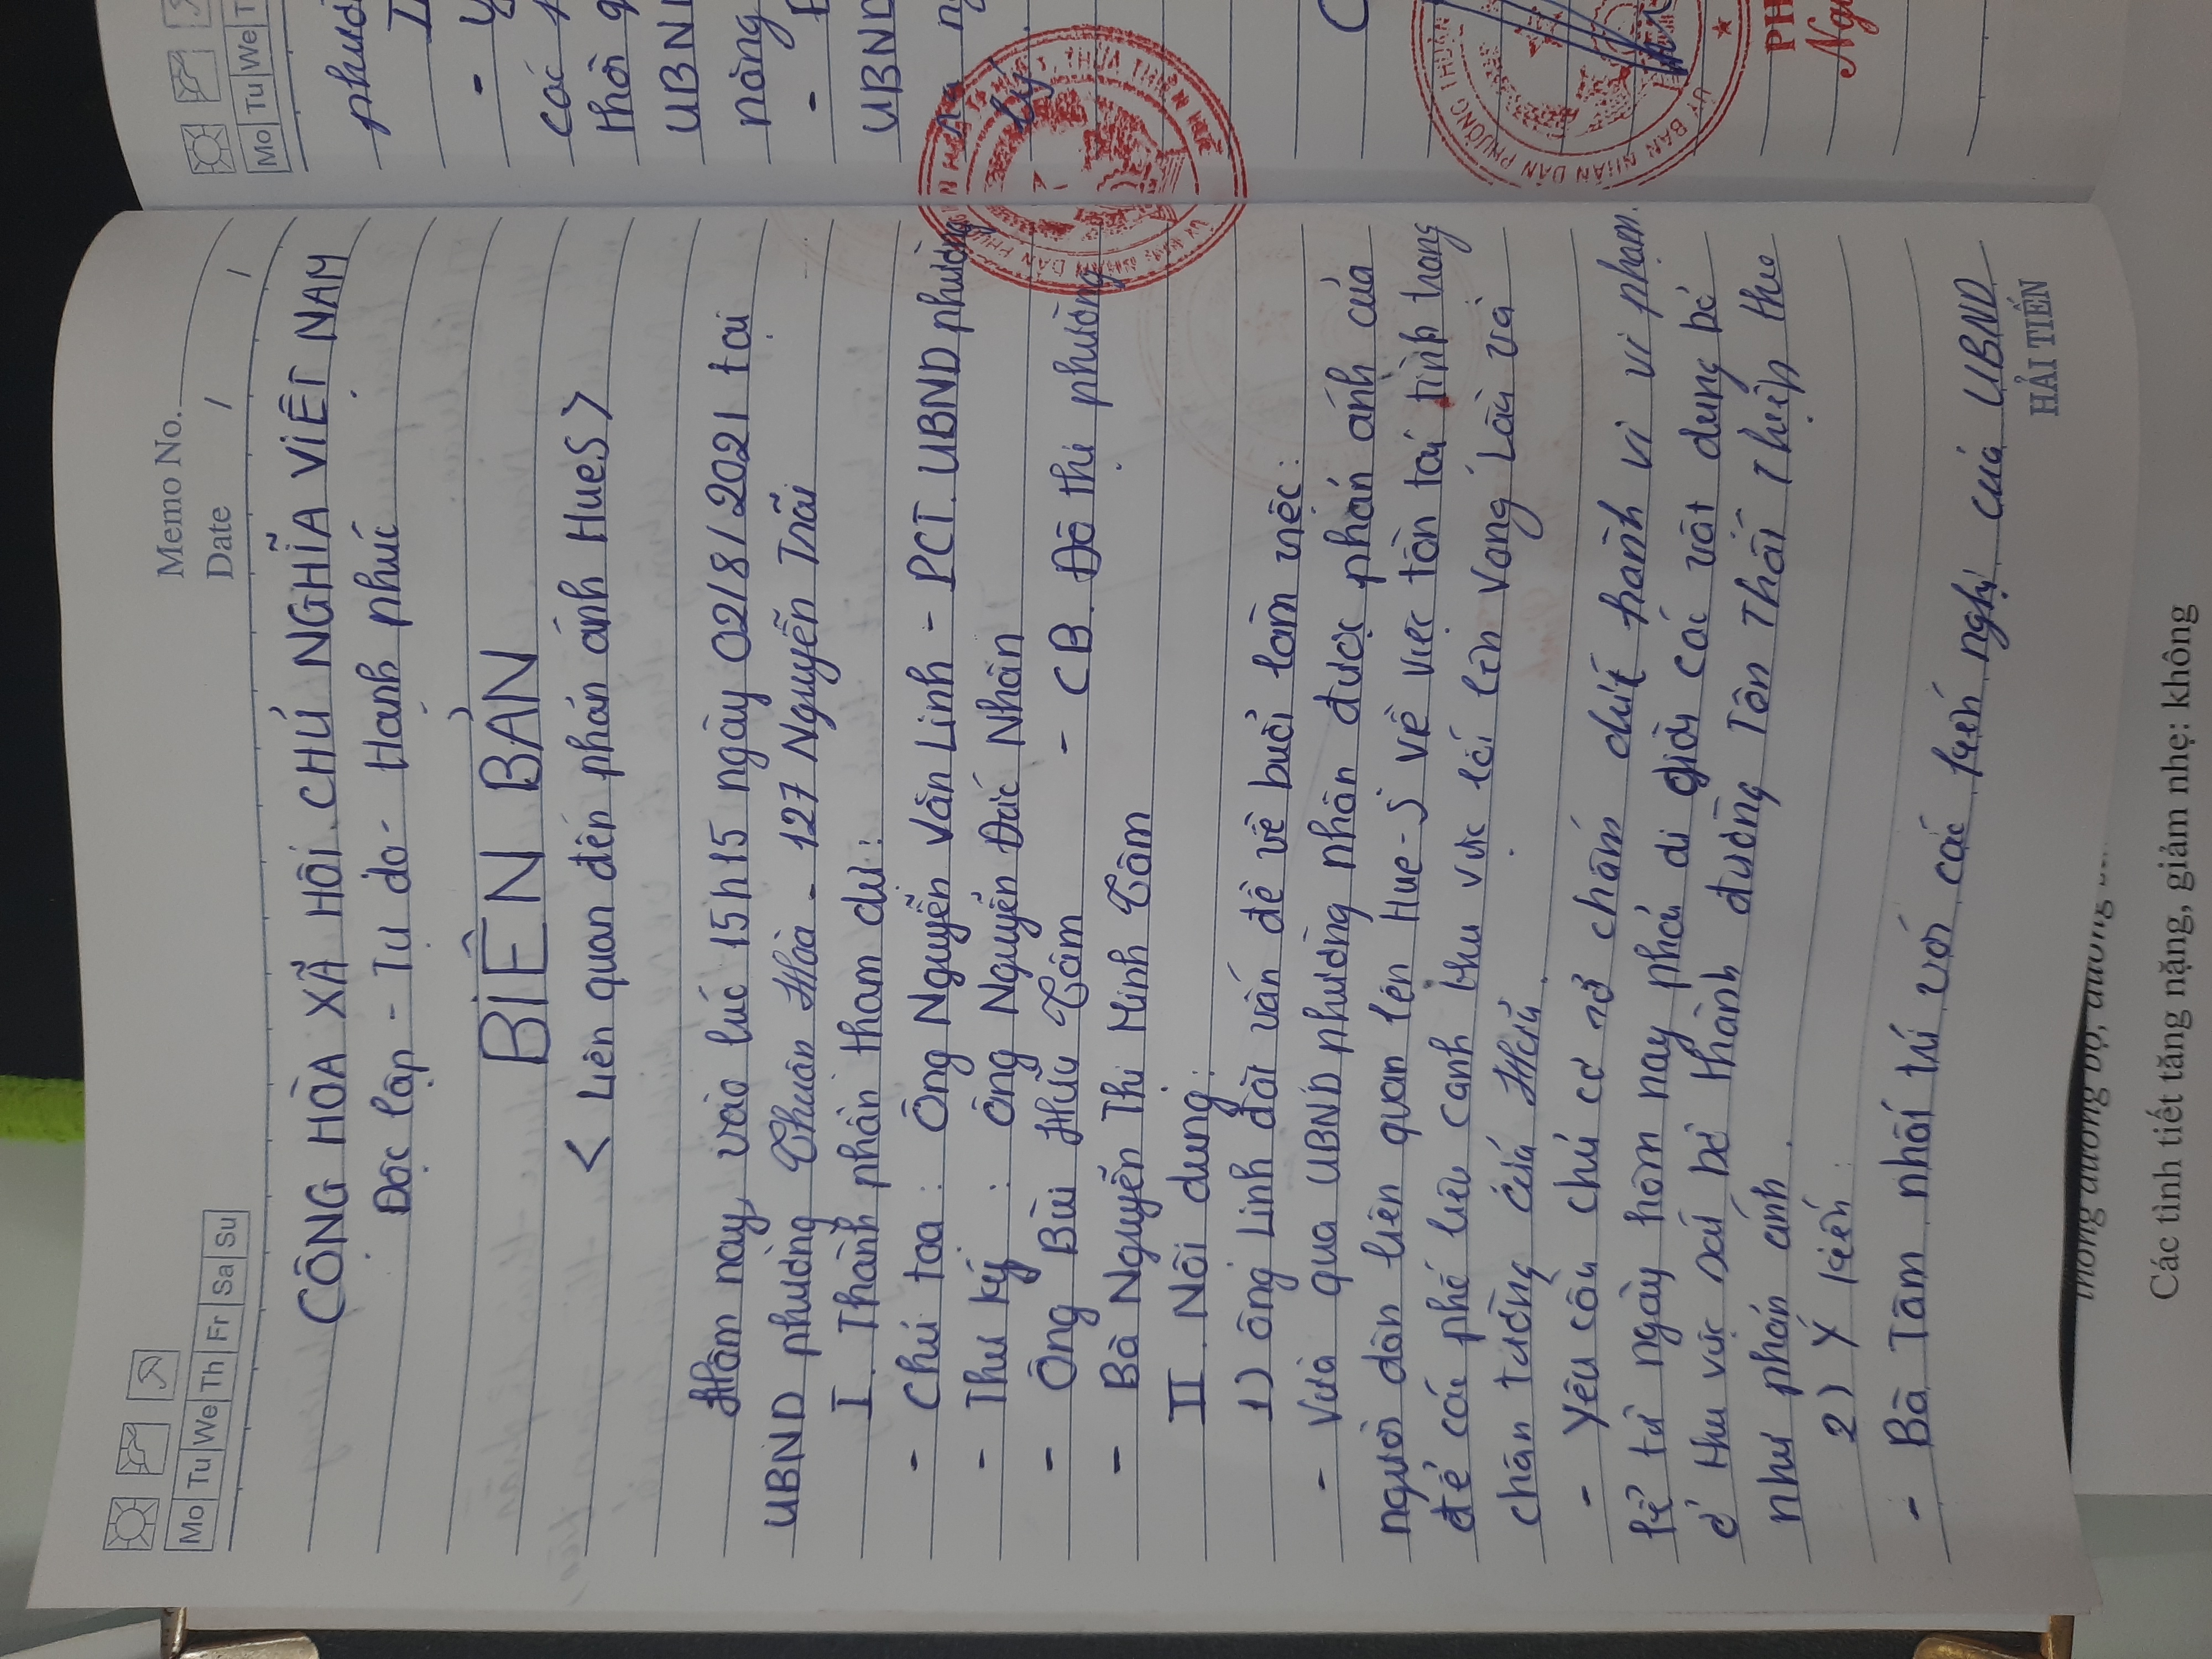 Memo No.
Mo Tu We Th Fr Sa Su
Date / /
CỘNG HÒA XÃ HỘI CHỦ NGHĨA VIỆT NAM
Độc lập - Tự do - Hạnh phúc
BIÊN BẢN
< Liên quan đến phản ánh HueS >
Hôm nay, vào lúc 15h15 ngày 02/8/2021 tại
UBND phường Thuận Hòa - 127 Nguyễn Trãi
I. Thành phần tham dự:
- Chủ tọa: Ông Nguyễn Văn Linh - PCT. UBND phường
- Thư ký: Ông Nguyễn Đức Nhân
- Ông Bùi Hữu Tâm - CB. Đô thị phường
- Bà Nguyễn Thị Minh Tâm
II. Nội dung:
1) Ông Linh đặt vấn đề về buổi làm việc:
- Vừa qua UBND phường nhận được phản ánh của
người dân liên quan lên Hue-S về việc tồn tại tình trạng
để các phế liệu cạnh khu vực lối lên Vọng Lâu và
chân tường của
- Yêu cầu chủ cơ sở chấm dứt hành vi vi phạm.
kể từ ngày hôm nay phải di dời các vật dụng bỏ
ở khu vực sát bờ thành đường Tôn Thất Thiệp thu
như phản ánh.
2) Ý kiến:
- Bà Tâm nhất trí với các kiến nghị của UBND
HẢI TIẾN
Mo Tu We T
phườ
- Y
các
thời g
UBN
nàng
-
UBND
ký
ỦY BAN NHÂN DÂN PHƯỜNG THUẬN
PH
Ngu
Các tình tiết tăng nặng, giảm nhẹ: không